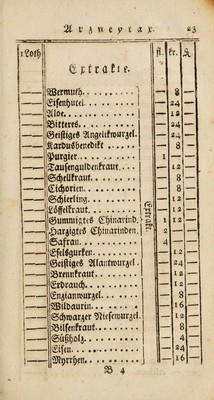 Arzneytax. 23
1 Loth fl. kr. ₰
Extrakte.
Wermuth. — 8
Eisenhutel. — 24
Aloe. — 12
Bitteres. — 24
Geistiges Angelikwurzel. — 24
Kardusbenedikt. — 8
Purgier. 1
Tausenguldenkraut. — 12
Schellkraut. — 12
Cichorien. — 8
Schierling. — 12
Löffelkraut. — 12
Gummigtes Chinarind. 1 12
Harzigtes Chinarinden. 2
Safran. 4
Eselsgurken. — 12
Geistiges Alantwurzel. — 24
Brennkraut. — 12
Erdrauch. — 12
Enzianwurzel. — 8
Wildaurin. — 16
Schwarzer Niesewurzel. — 12
Bilsenkraut. — 8
Süßholz. — 4
Eisen. — 24
Myrrhen. — 16
Extrakt.
B 4